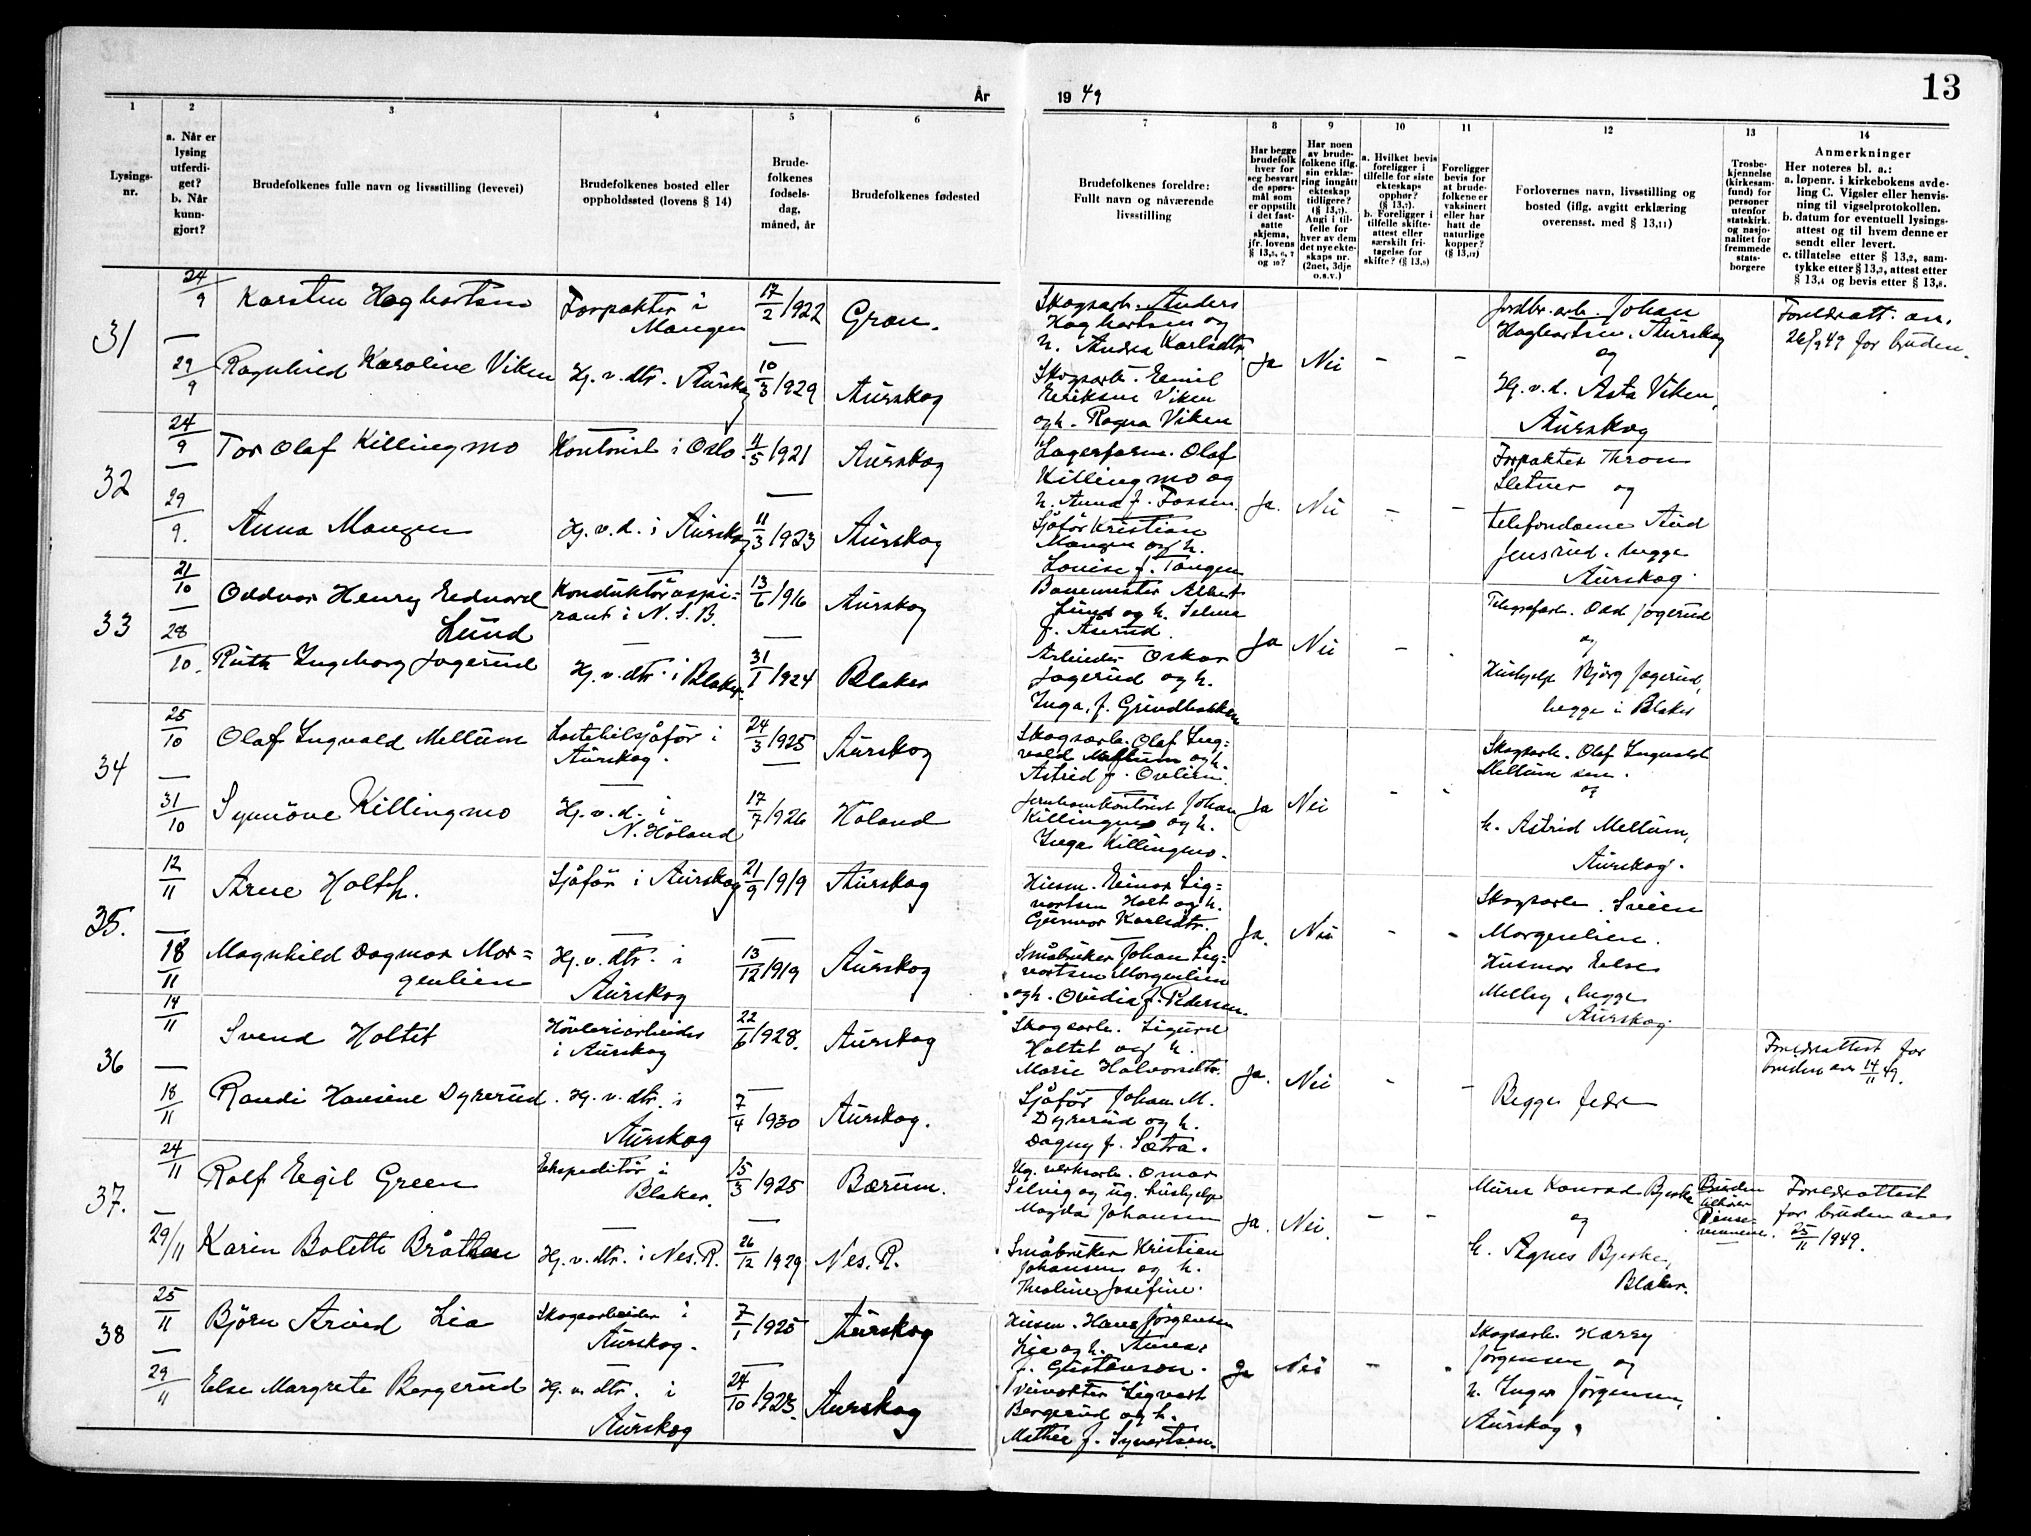 År
19 49
13
1
2
3
4
5
6
7
8
9
10
11
12
13
14
Lysings-
nr.
a. Når er
lysing
utferdi-
get?
b. Når
kunn-
gjort?
Brudefolkenes fulle navn og livsstilling (levevei)
Brudefolkenes bosted eller
oppholdssted (lovens § 14)
Brude-
folkenes
fødsels-
dag,
måned, år
Brudefolkenes fødested
Brudefolkenes foreldre:
Fullt navn og nåværende
livsstilling
Har begge
brudefolk
hver for
seg besvart
de spørs-
mål som
er oppstilt
i det fast-
satte
skjema,
jfr. lovens
og 10?
Har noen
av brude-
folkene iflg.
sin erklæ-
ring inngått
ekteskap
tidligere?
(§ 13,7).
Angi i til-
felle for
hver av dem
det nye ekte-
skaps nr.
(2net, 3dje
o.s.v.)
a. Hvilket bevis
foreligger i
tilfelle for siste
ekteskaps
opphør?
(§ 13,7).
b. Foreligger i
tilfelle skifte-
attest eller
særskilt fri-
tagelse for
skifte? (§ 13,8)
Foreligger
bevis for
at brude-
folkene er
vaksinert
eller har
hatt de
naturlige
kopper?
(§ 13,12)
Forlovernes navn, livsstilling og
bosted (iflg. avgitt erklæring
overensst. med § 13,11)
Trosbe-
kjennelse
(kirkesam-
fund) for
personer
utenfor
statskirk.
og nasjo-
nalitet for
fremmede
stats-
borgere
Anmerkninger
Her noteres bl. a.:
a. løpenr. i kirkebokens avde-
ling C. Vigsler eller henvis-
ning til vigselprotokollen.
b. datum for eventuell lysings-
attest og til hvem denne er
sendt eller levert.
c. tillatelse etter § 13,2, sam-
tykke etter § 13,3, attest etter
§ 13,4 og bevis etter § 13,8.
31
24/9
Karsten Haghartsen
Forpakter i
Mangen
17/2 1922
Gran.
29/9
Ragnhild Karoline Viken
Hj. v. dtr. Aurskog
10/3 1929
Aurskog
Skogsarb. Anders
Haghartsen og
h. Andrea Karlsdtr.
Skogsarb. Emil
Eriksen Viken
og h. Ragna Viken
Ja
Nei
-
-
Jordbr. arb. Johan
Haghartsen, Aurskog
og
Hj. v. d. Asta Viken,
Aurskog
26/9 49 for bruden.
32
24/9
Tor Olaf Killingmo
Kontorist i Oslo.
11/5 1921
Aurskog
29/9.
Anna Mangen
Hj. v. d. i Aurskog
11/3 1923
Aurskog
Lagerform. Olaf
Killingmo og
h. Anna f. Fossen.
Sjåfør Kristian
Mangen og h.
Louise f. Tangen
Ja.
Nei
-
-
Forpakter Thron
Sletner og
telefondame Aud
Jensrud, begge
Aurskog.
33
21/10
Oddvar Henry Edvard
Lund
Konduktøraspi=
rant i N.S.B.
13/6 1916
Aurskog
28/10.
Ruth Ingeborg Jogerud
Hj. v. dtr. i Blaker.
31/1 1924
Blaker
Banemester Albert
Lund og h. Selma
f. Åserud.
Arbeider Oskar
Jogerud og h.
Inga, f. Grindbakken
Ja
Nei
-
Telegrafarb. Odd Jogerud
og
Hushjelp Bjørg Jogerud,
begge i Blaker
34
25/10
Olaf Ingvald Mellum
Lastebilsjåfør i
Aurskog.
24/3 1925
Aurskog
31/10
Synnöve Killingmo
Hj. v. d. i
N. Höland
17/7 1926
Höland
Skogsarb. Olaf Ing=
vald Mellum og h.
Astrid f. Ovlien.
Jernbanekontorist Johan
Killingmo og h.
Inga Killingmo.
Ja
Nei
-
Skogsarb. Olaf Ingvald
Mellum sen.
og
h. Astrid Mellum,
Aurskog.
35.
12/11
Arne Holth.
Sjåfør i Aurskog
21/9 1919
Aurskog
18/11
Magnhild Dagmar Mor=
genlien
Hj. v. dtr. i
Aurskog
13/12 1919
Aurskog
Husm. Einar Sig=
vartsen Holt og h.
Gunvor Karlsdtr.
Småbruker Johan Sig=
vartsen Morgenlien
og h. Ovidia f. Pedersen.
Ja.
Nei
-
Skogsarb. Svein
Morgenlien.
Husmor Else
Melby, begge
Aurskog.
36
14/11
Svend Holtet
Høvleriarbeider
i Aurskog
22/6 1928.
Aurskog
18/11
Randi Hansine Dyrerud.
Hj. v. dtr. i
Aurskog
7/4 1930
Aurskog.
Skogsarb. Sigurd
Holtet og h.
Marie Halvorsdtr.
Sjåfør Johan M.
Dyrerud og h.
Dagny f. Sætra.
Ja.
Nei
-
-
Begges fedre
Foreldreattest for
bruden av 14/11 49.
37.
24/11
Rolf Egil Green
Ekspeditør i
Blaker.
15/3 1925
Bærum.
29/11
Karin Bolette Bråthen
Hj. v. dtr. i Nes. R.
26/12 1929
Nes. R.
Ug. verksarb. Omar
Selvig og ug. hushjelp
Magda Johansen
Småbruker Kristian
Johansen og h.
Theoline Josefine.
Ja.
Nei.
-
-
Murer Konrad Bjerke
og
h. Agnes Bjerke,
Blaker.
Bruden
tilhører
Pinse-
vennene.
Foreldreattest
for bruden av
25/11 1949.
38
25/11
Björn Arvid Lia
Skogsarbeider i
Aurskog.
7/1 1925
Aurskog
29/11
Else Margrete Bergerud
Hj. v. dtr. i
Aurskog
24/10 1923.
Aurskog
Husm. Hans Jørgensen
Lia og h.
f. Gustavson.
Sigvart
Bergerud og h.
Mathea f. Syvertsen.
Ja
Nei
-
Skogsarb. Harry
Jørgensen og
h. Inger Jørgensen,
Aurskog.